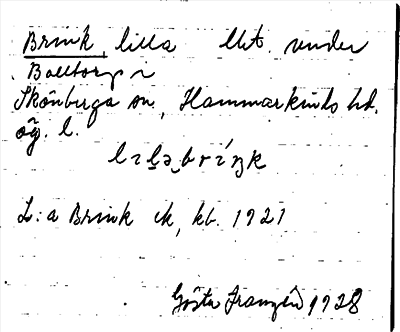 Brink, lilla lht. under
Balltorp i
Skönberga sn, Hammarkinds hd.
Ög. l.
L:a Brink ek, kb. 1921
Gösta Franzén 1928